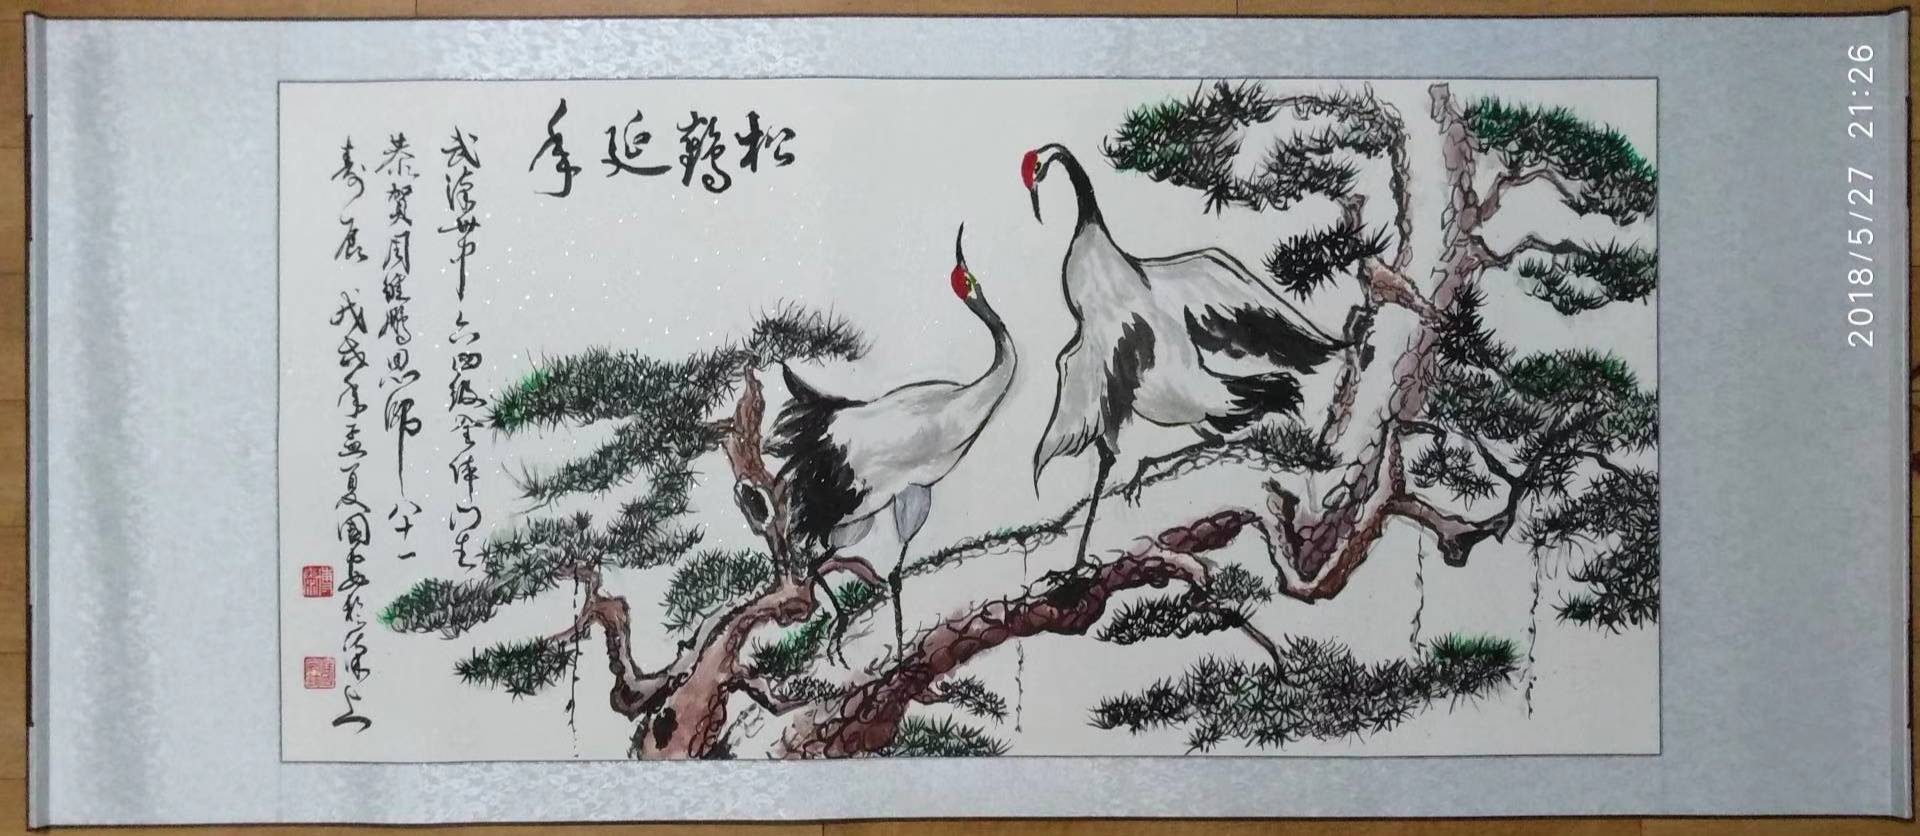 松鹤延年
武汉卅中六四级全体门生
恭贺周继鹏恩师八十一
寿辰 戊戌年孟夏国安於汉上
2018/5/27 21:26